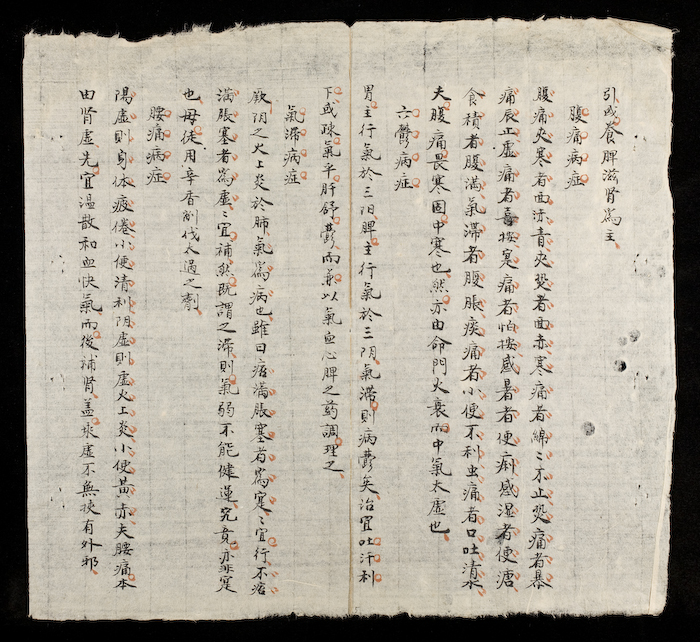 引或養脾滋肾為主
腹痛病症
腹痛夾寒者面赤青夾熒者面赤寒痛者綿〻不止熒痛者暴
痛辰止虚痛者喜按寔痛者怕按感暑者便痢感湿者便溏
食積者腹满氣滞者腹脹痰痛者小便不利虫痛者口吐清水
夫腹痛畏寒固中寒也然亦由命門火衰而中氣太虚也
六鬱病症
胃主行氣於三阳脾主行氣於三阴氣滞則病鬱矣治宜吐汗利
下或疎氣平肝舒鬱而兼以氣血心脾之药調理之
氣滞病症
厥阴之火上炎於肺氣為病也雖曰痞满脹塞者為寔〻宜行不痞
满脹塞者為虚〻宜補然既謂之滞則氣弱不能健運究竟亦非寔
也毋徒用辛香削伐太過之劑
腰痛病症
陽虚則身体疲倦小便清利阴虚則虚火上炎小便黄赤夫腰痛本
由肾虚先宜温散和血快氣而後補肾盖乘虚不無挾有外邪